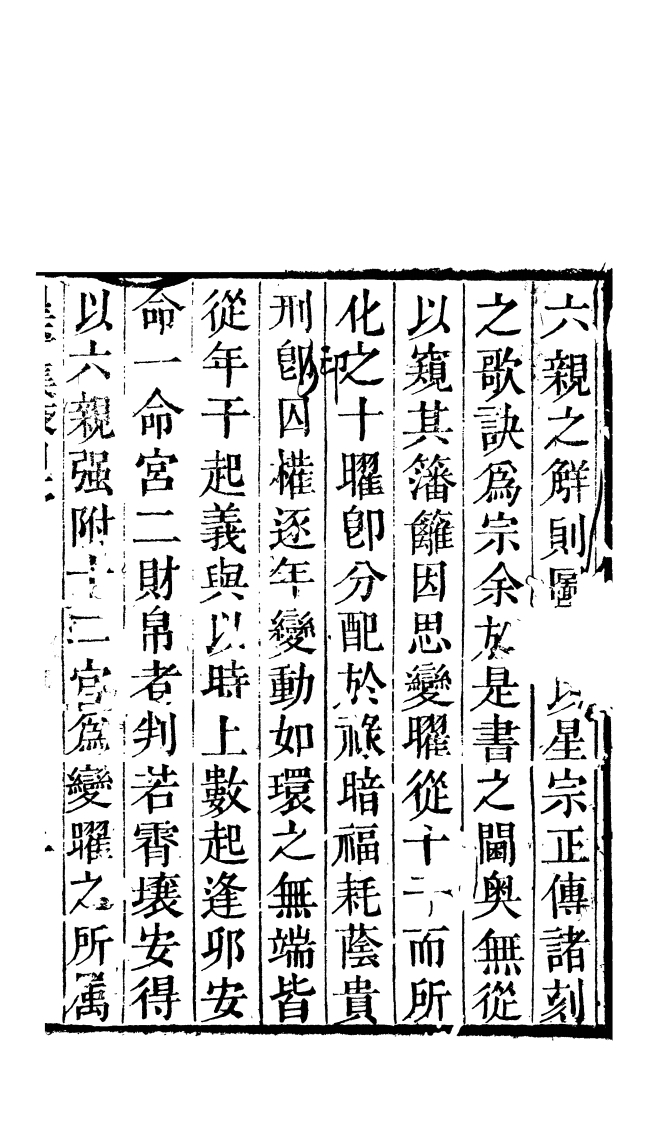 六親之解則以星宗正傳諸刻
之歌訣爲宗余於是書之閫奥無從
以窺其籓籬因思變曜從十干而所
化之十曜卽分配於祿暗福耗蔭貴
刑卽囚權逐年變動如環之無端皆
印
從年干起義與以時上數起逢卯安
命一命宮二財帛者判若霄壤安得
以六親强附十二宮爲變曜之所属